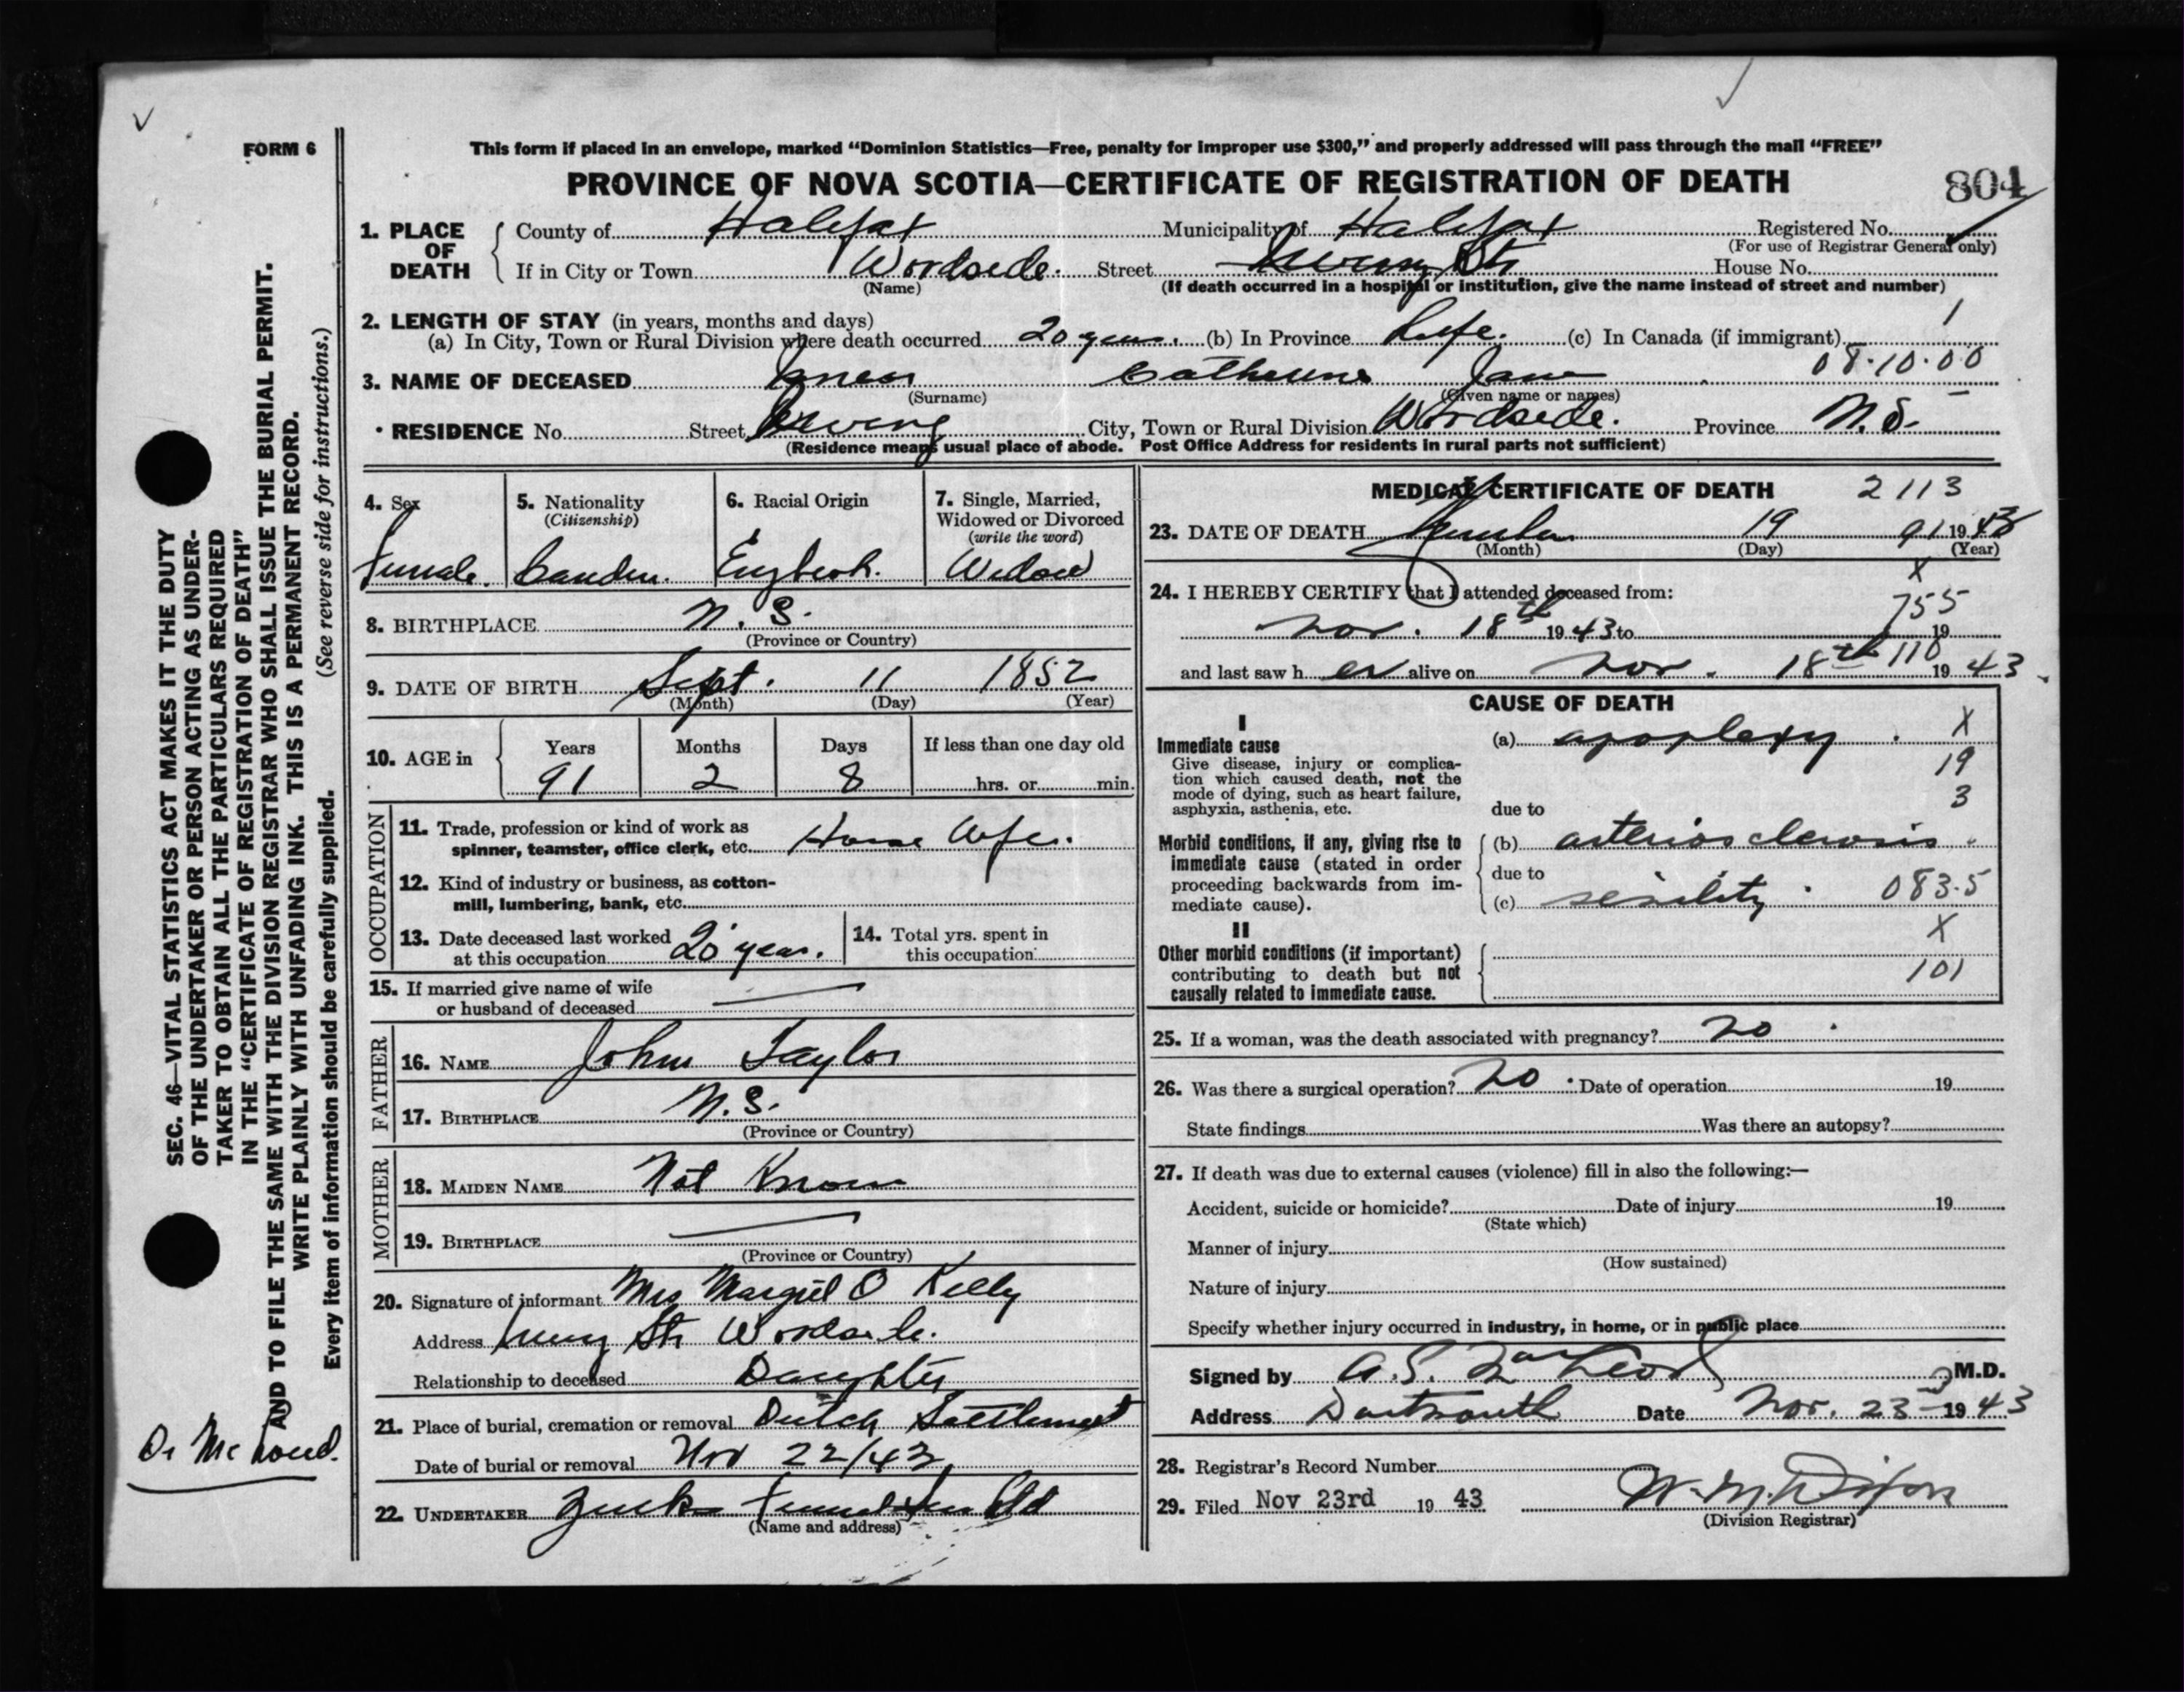 FORM 6
This form if placed in an envelope, marked “Dominion Statistics—Free, penalty for improper use $300,” and properly addressed will pass through the mail “FREE”
PROVINCE OF NOVA SCOTIA—CERTIFICATE OF REGISTRATION OF DEATH
804
1. PLACE OF DEATH
County of Halifax Municipality of Halifax Registered No.
(For use of Registrar General only)
If in City or Town Woodside. Street St House No.
(Name) (If death occurred in a hospital or institution, give the name instead of street and number)
2. LENGTH OF STAY (in years, months and days) 1
(a) In City, Town or Rural Division where death occurred 20 years. (b) In Province Life. (c) In Canada (if immigrant)
08·10·00
3. NAME OF DECEASED Catherine Jane
(Surname) (Given name or names)
RESIDENCE No. Street Irving City, Town or Rural Division Woodside. Province N.S.
(Residence means usual place of abode. Post Office Address for residents in rural parts not sufficient)
4. Sex
Female.
5. Nationality
(Citizenship)
Canadn.
6. Racial Origin
English.
7. Single, Married,
Widowed or Divorced
(write the word)
Widow
8. BIRTHPLACE N.S.
(Province or Country)
9. DATE OF BIRTH Sept. 11 1852
(Month) (Day) (Year)
10. AGE in
Years Months Days If less than one day old
91 2 8 hrs. or min.
OCCUPATION
11. Trade, profession or kind of work as
spinner, teamster, office clerk, etc. House Wife.
12. Kind of industry or business, as cotton-
mill, lumbering, bank, etc.
13. Date deceased last worked
at this occupation 20 years.
14. Total yrs. spent in
this occupation
15. If married give name of wife
or husband of deceased
FATHER
16. NAME John Taylor
17. BIRTHPLACE N.S.
(Province or Country)
MOTHER
18. MAIDEN NAME Not Known
19. BIRTHPLACE
(Province or Country)
20. Signature of informant Mrs O Kelly
Address St Woodside.
Relationship to deceased Daughter
21. Place of burial, cremation or removal Dutch Settlement
Date of burial or removal Nov 22/43
22. UNDERTAKER Ltd
(Name and address)
MEDICAL CERTIFICATE OF DEATH 2113
23. DATE OF DEATH November 19 91 1943
(Month) (Day) (Year)
X
24. I HEREBY CERTIFY that I attended deceased from:
755
Nov. 18th 1943 to 19
110
and last saw her alive on Nov. 18th 1943
CAUSE OF DEATH
I
Immediate cause
Give disease, injury or complica-
tion which caused death, not the
mode of dying, such as heart failure,
asphyxia, asthenia, etc.
(a) apoplexy. X
19
3
due to
Morbid conditions, if any, giving rise to
immediate cause (stated in order
proceeding backwards from im-
mediate cause).
(b) arterios clerosis.
due to
(c) senility. 083·5
X
II
Other morbid conditions (if important)
contributing to death but not
causally related to immediate cause.
101
25. If a woman, was the death associated with pregnancy? no.
26. Was there a surgical operation? no. Date of operation 19
State findings Was there an autopsy?
27. If death was due to external causes (violence) fill in also the following:—
Accident, suicide or homicide? Date of injury 19
(State which)
Manner of injury
(How sustained)
Nature of injury
Specify whether injury occurred in industry, in home, or in public place
Signed by A.S. MacLeod M.D.
Address Dartmouth Date Nov. 23rd 1943
28. Registrar's Record Number
29. Filed Nov 23rd 19 43 W. M. Dixon
(Division Registrar)
SEC. 46—VITAL STATISTICS ACT MAKES IT THE DUTY
OF THE UNDERTAKER OR PERSON ACTING AS UNDER-
TAKER TO OBTAIN ALL THE PARTICULARS REQUIRED
IN THE “CERTIFICATE OF REGISTRATION OF DEATH”
AND TO FILE THE SAME WITH THE DIVISION REGISTRAR WHO SHALL ISSUE THE BURIAL PERMIT.
WRITE PLAINLY WITH UNFADING INK. THIS IS A PERMANENT RECORD.
Every item of information should be carefully supplied. (See reverse side for instructions.)